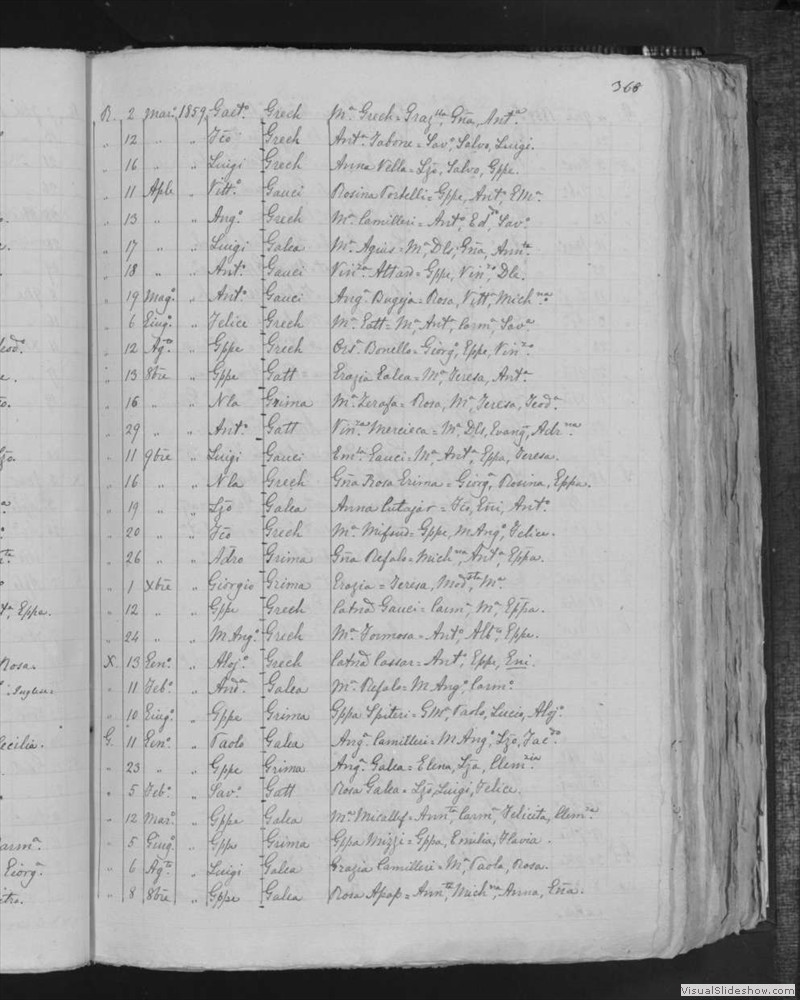 368
R. 2 Mar.º 1859 Gaet.º Grech M.ª Grech = Graz.lla, Gña, Ant.ª
„ 12 „ „ Fcõ Grech Ant.ª Tabone = Sav.º, Salvo, Luigi.
„ 16 „ „ Luigi Grech Anna Vella = Ljõ, Salvo, Gppe.
„ 11 Aple „ Vitt.º Gauci Rosina Portelli = Gppe, Ant.º, EM.ª
„ 13 „ „ Ang.º Grech M.ª Camilleri = Ant.º, Ed.do, Sav.º
„ 17 „ „ Luigi Galea M.ª Agius = M.ª Dls, Gña, Ann.ta
„ 18 „ „ Ant.º Gauci Vin.za Attard = Gppe, Vin.zo, Dle.
„ 19 Mag.º „ Ant.º Gauci Ang.ª Bugeja = Rosa, Vitt.ª, Mich.na
„ 6 Giug.º „ Felice Grech M.ª Gatt = M.ª, Ant.ª, Carm.ª, Sav.ª
„ 12 Ag.to „ Gppe Grech Ors.ª Bonello = Giorg.º, Gppe, Vin.zo
„ 13 8bre „ Gppe Gatt Grazia Galea = M.ª, Teresa, Ant.ª
„ 16 „ „ Nla Grima M.ª Zerafa = Rosa, M.ª, Teresa, Teod.ª
„ 29 „ „ Ant.º Gatt Vin.za Mercieca = M.ª Dls, Evang., Adr.na
„ 11 9bre „ Luigi Gauci Em.la Gauci = M.ª, Ant.ª, Gppa, Teresa.
„ 16 „ „ Nla Grech Gña Rosa Grima = Giorg.ª, Rosina, Gppa.
„ 19 „ „ Ljõ Galea Anna Cutajar = Fcõ, Gni, Ant.º
„ 20 „ „ Fcõ Grech M.ª Mifsud = Gppe, M Ang.º, Felice.
„ 26 „ „ Adro Grima Gña Refalo = Mich.na, Ant.ª, Gppa.
„ 1 Xbre „ Giorgio Grima Grazia = Teresa, Mod.sta, M.ª
„ 12 „ „ Gppe Grech Catnã Gauci = Carm.ª, M.ª, Gppa.
„ 24 „ „ M Ang.º Grech M.ª Formosa = Ant.º, Alb.to, Gppe.
X. 13 Gen.º „ Aloj.º Grech Catnã Cassar = Ant.º, Gppe, Gni.
„ 11 Feb.º „ And.ª Galea M.ª Refalo = M Ang.º, Carm.º
„ 10 Giug.º „ Gppe Grima Gppa Spiteri = GM.ª, Paolo, Lucio, Aloj.º
G. 11 Gen.º „ Paolo Galea Ang.ª Camilleri = M Ang.º, Ljõ, Sac.do
„ 23 „ „ Gppe Grima Ang.ª Galea = Elena, Ljã, Clem.zia
„ 5 Feb.º „ Sav.º Gatt Rosa Galea = Ljõ, Luigi, Felice.
„ 12 Mar.º „ Gppe Galea M.ª Micallef = Ann.ta, Carm.ª, Felicita, Clem.za
„ 5 Giug.º „ Gppe Grima Gppa Mizzi = Gppa, Emilia, Flavia.
„ 6 Ag.to „ Luigi Galea Grazia Camilleri = M.ª, Paola, Rosa.
„ 8 8bre „ Gppe Galea Rosa Apap = Ann.ta, Mich.na, Anna, Gña.
Gppa.
Rosa.
Cecilia.
Carm.ª
Giorg.ª
VisualSlideshow.com